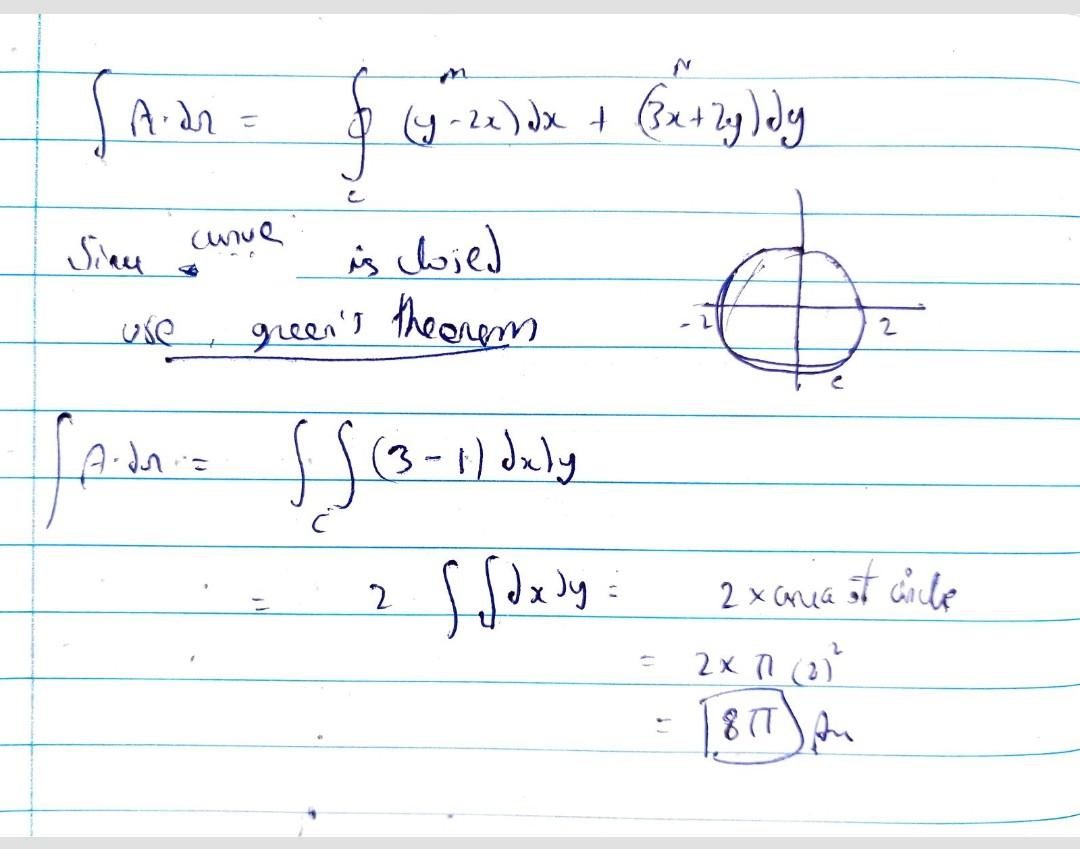 M N
∫ A·dr = ∮ (y-2x)dx + (3x+2y)dy
c
Since curve is closed
use, green's theorem
-2 2
c
∫ A·dr = ∫∫ (3-1) dxdy
c
= 2 ∫∫dxdy = 2 x area of circle
= 2x π (2)²
= 8π Ans